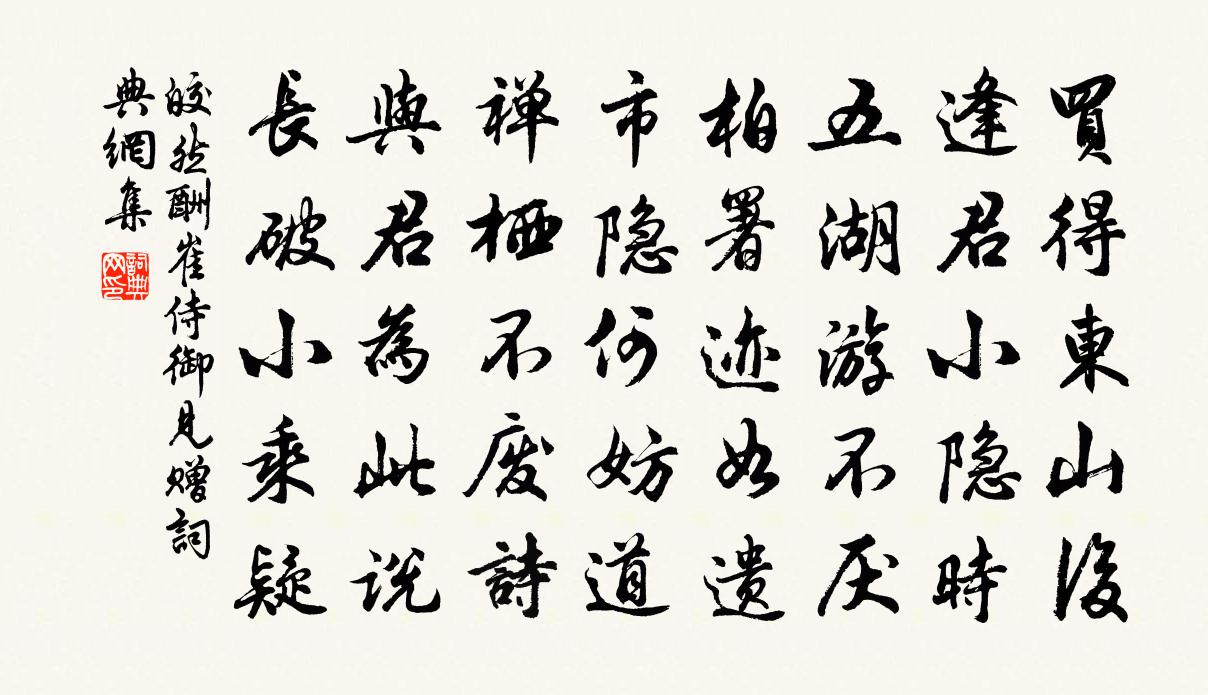 買得東山後
逢君小隐時
五湖游不厌
柏署迹如遗
市隐何妨道
禅栖不废詩
與君為此说
長破小乘疑
皎然酬崔侍御見赠詞
典網集
詞典网印